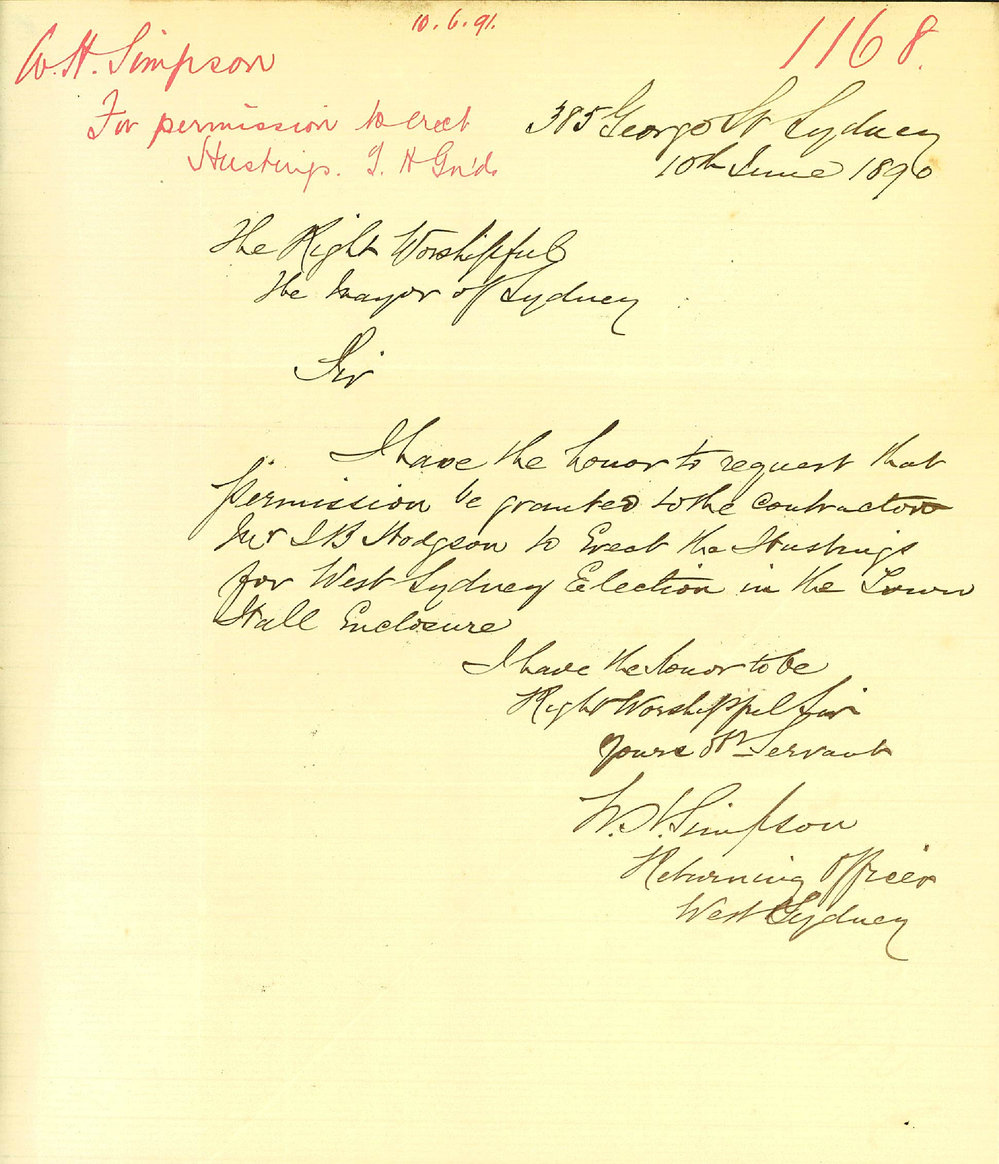 10.6.91.
1168.
W. H. Simpson
For permission to erect
Hustings. T. H Gr'ds
385 George St Sydney
10th June 1890
The Right Worshipful
The Mayor of Sydney
Sir
I have the honor to request that
permission be granted to the Contractor
Mr J B Hodgson to Erect the Hustings
for West Sydney Election in the Town
Hall Enclosure
I have the honor to be
Right Worshipful Sir
Yours Ob Servant
W. H. Simpson
Returning Officer
West Sydney